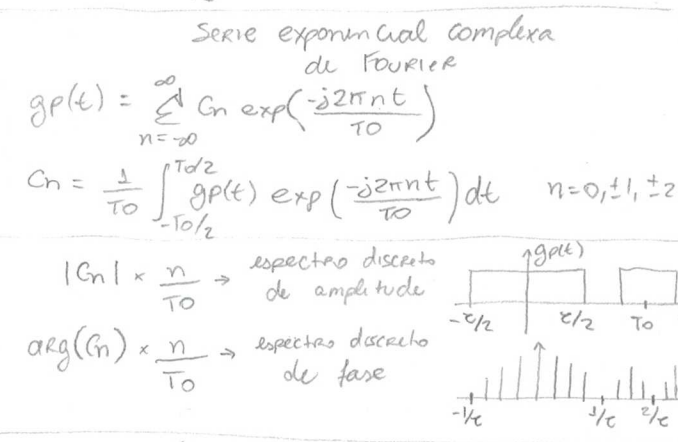 Serie exponencial complexa
de Fourier
gp(t) = ∞ Σ n=-∞ Cn exp(-j2πnt / T0)
Cn = 1/T0 ∫ T0/2 -T0/2 gp(t) exp(-j2πnt / T0) dt n=0,±1,±2
|Cn| × n/T0 → espectro discreto
de amplitude
gp(t)
-τ/2 τ/2 T0
arg(Cn) × n/T0 → espectro discreto
de fase
-1/τ 1/τ 2/τ